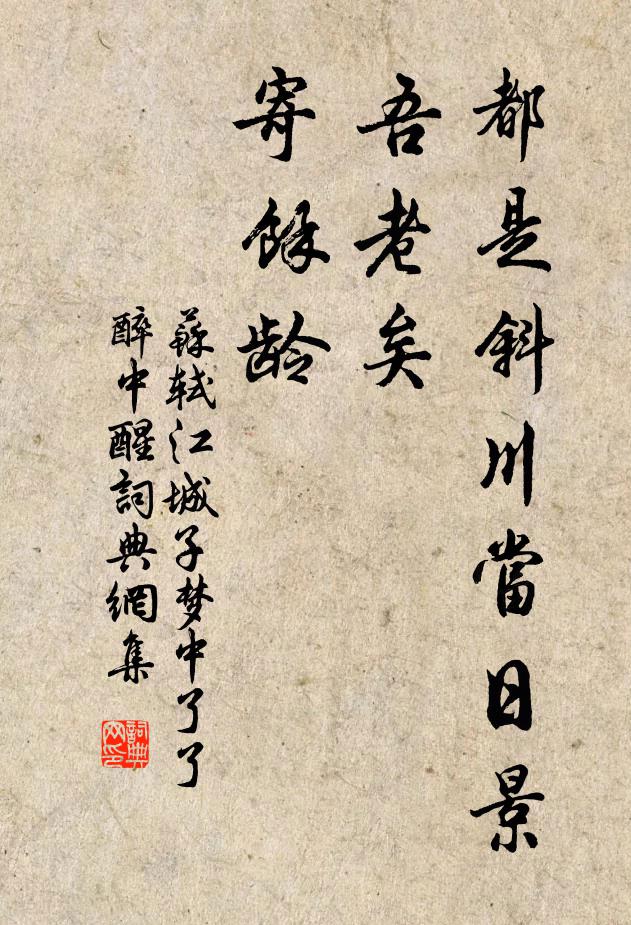 都是斜川當日景
吾老矣
寄餘齡
蘇軾江城子梦中了了
醉中醒詞典網集
詞典网印